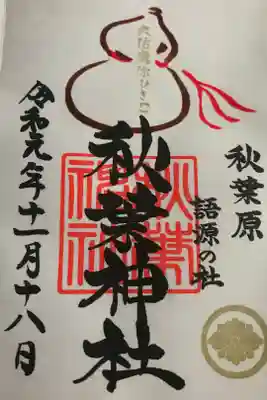 秋葉原
語源の社
秋葉神社
秋葉神社
令和元年十一月十八日